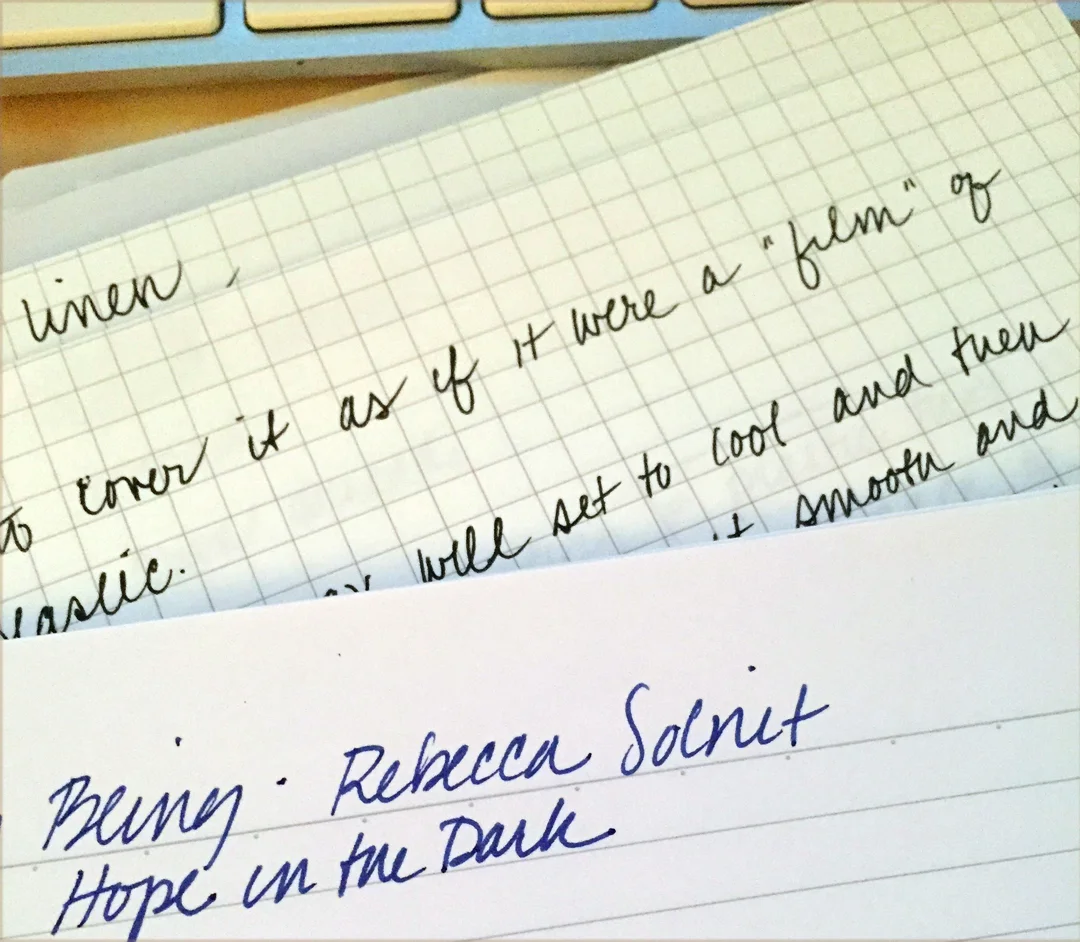 linen,
to cover it as if it were a "film" of
plastic.
will set to cool and then
it smooth and
Being. Rebecca Solnit
Hope in the Dark